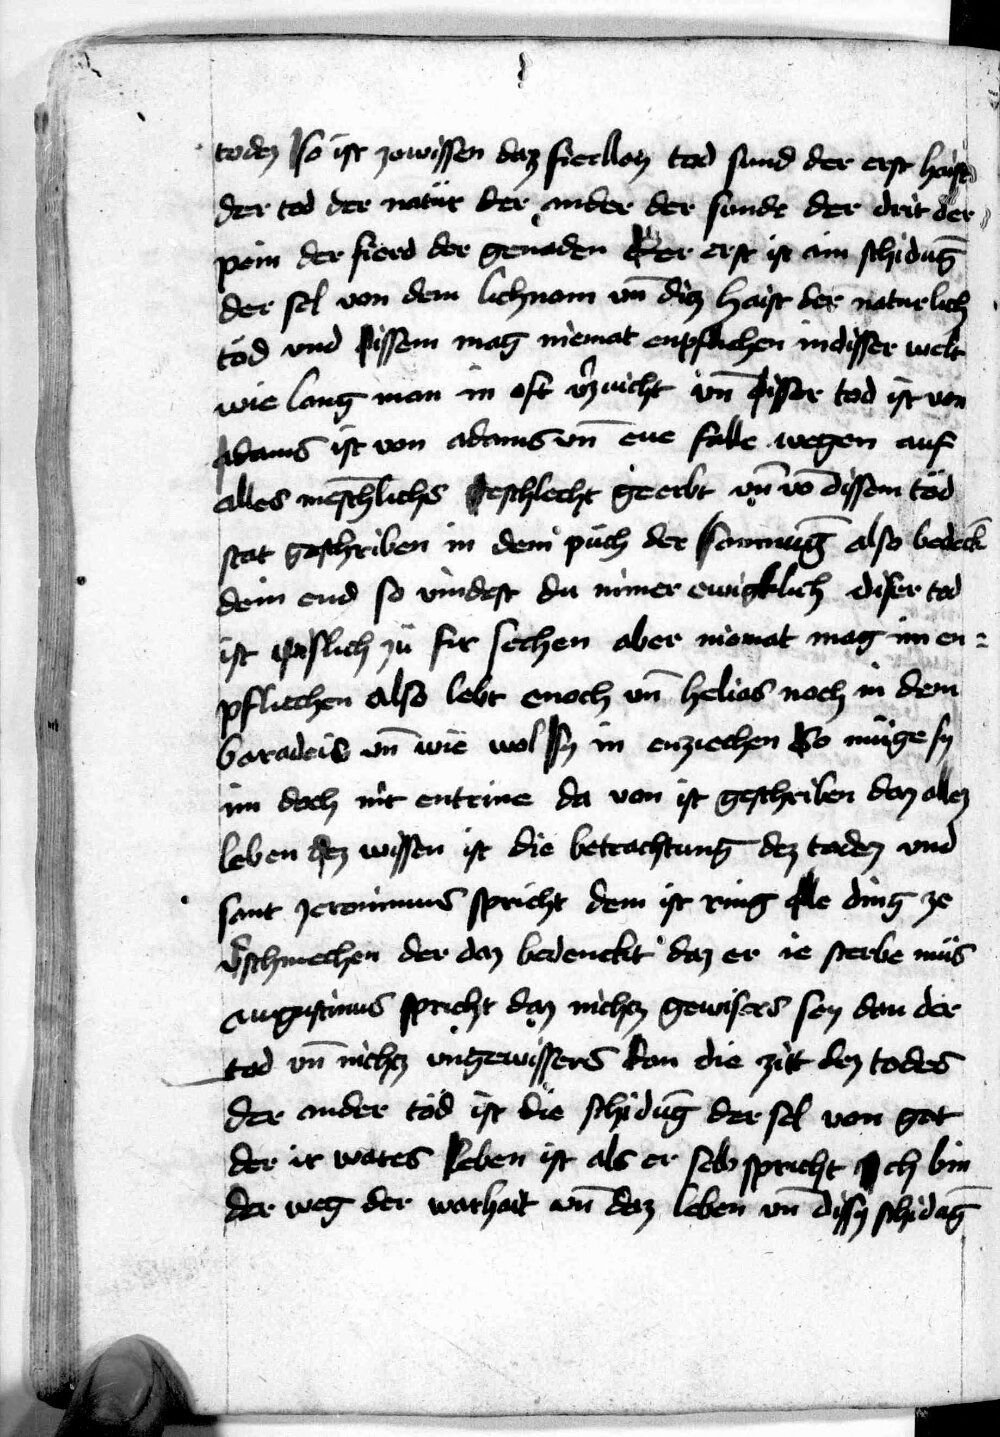 todez so ist zowissen daz fierllay tod sind der erst haist
der tod der natür der ander der sunde der drit der
pein der fierd der genaden Der erst ist ain schidūg
der sel von dem lichnam vn̄ diz haist der naturlich
töd vnd dissem mag niemat enpfliehen indisser welt
wie lang man in oft v̄zuicht vn̄ disser tod ist von
adams ist von adams vn̄ eue falle wegen auf
alles mēschlichs geschlecht geerbt vn̄ vō dissem töd
stat geschriben in dem püch der samnūg also bedeck
dein end so vindest du nimer ewigklich diser tod
ist zü fir sechen aber niemat mag im en=
pfliechen also lebt enoch vn̄ helias noch in dem
baradeis vn̄ wie wol sy in enziechen So müge sy
im doch nit entrine da von ist geschriben daz allez
leben dez wissen ist die betrachtung dez todez vnd
sant Jeronimus spricht dem ist ring alle ding ze
v̄schmechen der daz bedenckt daz er ie sterbe müs
augustinus spricht daz nichtz gewisers sey dan der
tod vn̄ nichtz vngewissers dan die zitt dez todes
der ander töd ist die schidūg der sel von got
der ir wares leben ist als er selb spricht Ich bin
der weg der warhait vn̄ daz leben vn̄ dissy schidūg